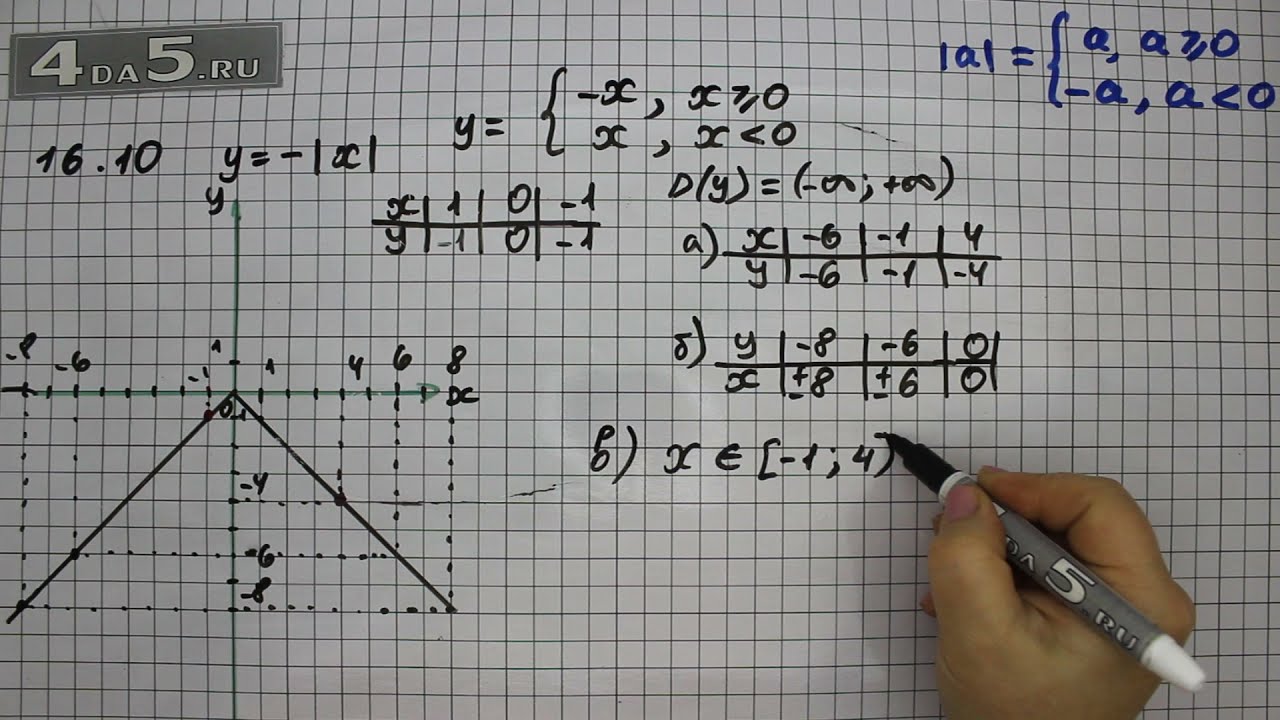 4DA5.RU
|a| = { a, a ⩾ 0
-a, a < 0
16.10 y = -|x|
y = { -x, x ⩾ 0
x, x < 0
D(y) = (-∞; +∞)
x | 1 | 0 | -1
y | -1 | 0 | -1
а) x | -6 | -1 | 4
y | -6 | -1 | -4
б) y | -8 | -6 | 0 |
x | ±8 | ±6 | 0 |
в) x ∈ [-1; 4)
y
-8 -6 -1 1 1 4 6 8
0 1 x
-4
-6
-8
4DA5.RU